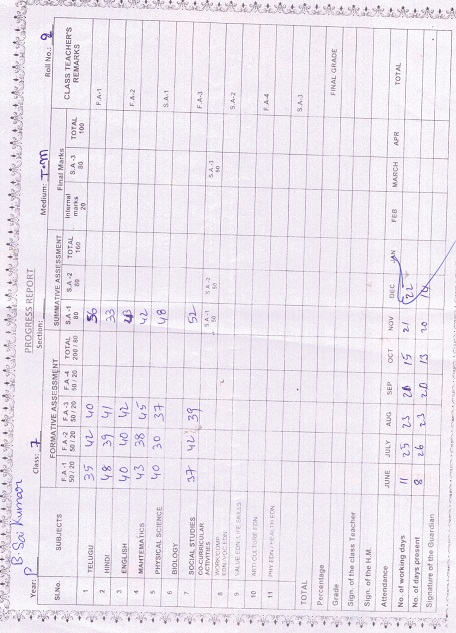 PROGRESS REPORT
P B Sai Kumar
Year: Class: 7 Section: Medium: T.M Roll No.: 2
Sl.No. SUBJECTS FORMATIVE ASSESSMENT SUMMATIVE ASSESSMENT Final Marks CLASS TEACHER'S REMARKS
F.A-1 50 / 20 F.A-2 50 / 20 F.A-3 50 / 20 F.A-4 50 / 20 TOTAL 200 / 80 S.A-1 80 S.A-2 80 TOTAL 160 Internal marks 20 S.A-3 80 TOTAL 100
1 TELUGU 35 42 40 56 F.A-1
2 HINDI 48 39 41 33
3 ENGLISH 40 40 42 F.A-2
4 MAHTEMATICS 43 38 45 42
5 PHYSICAL SCIENCE 40 30 37 48 S.A-1
6 BIOLOGY
7 SOCIAL STUDIES 37 42 39 52 F.A-3
CO-CURRICULAR ACTIVITIES S.A-1 50 S.A-2 50 S.A-3 50
8 S.A-2
9
10 F.A-4
11
TOTAL S.A-3
Percentage
Grade FINAL GRADE
Sign. of the class Teacher
Sign. of the H.M.
Attendance JUNE JULY AUG SEP OCT NOV DEC JAN FEB MARCH APR TOTAL
No. of working days 11 25 23 15 21 22
No. of days present 8 26 23 20 13 20
Signature of the Guardian